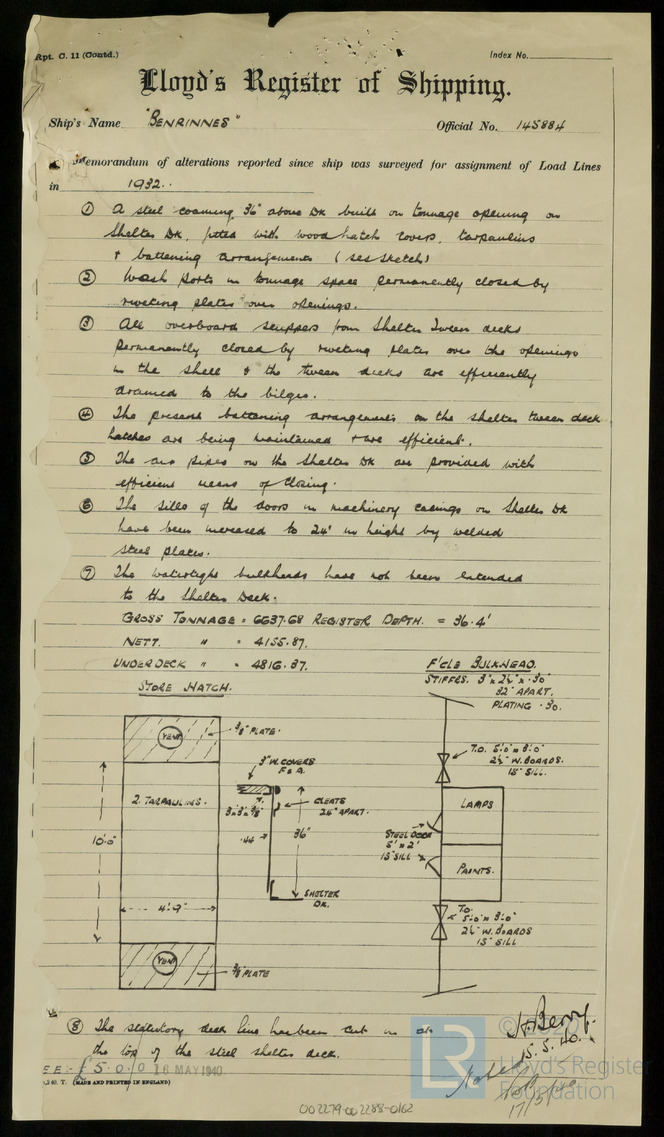 Rpt. C. 11 (Contd.)
Index No.
Lloyd's Register of Shipping.
Ship's Name "BENRINNES"
Official No. 145884
Memorandum of alterations reported since ship was surveyed for assignment of Load Lines
in 1932.
① A steel coaming 36" above Dk built on tonnage opening on
Shelter Dk, fitted with wood hatch covers, tarpaulins
& battening arrangements (see sketch)
② Wash ports in tonnage space permanently closed by
riveting plates over openings.
③ All overboard scuppers from Shelter Tween decks
permanently closed by riveting plates over the openings
in the shell & the tween decks are efficiently
drained to the bilges.
④ The present battening arrangements on the shelter tween deck
hatches are being maintained & are efficient.
⑤ The air pipes on the Shelter Dk are provided with
efficient means of closing.
⑥ The sills of the doors in machinery casings on Shelter Dk
have been increased to 24" in height by welded
steel plates.
⑦ The watertight bulkheads have not been extended
to the Shelter Deck.
GROSS TONNAGE = 6637.68 REGISTER DEPTH. = 36.4'
NETT. " = 4155.87.
UNDERDECK " = 4816.37.
STORE HATCH.
F'CLE BULKHEAD.
STIFFRS. 3" x 2½" x .30"
32" APART.
PLATING .30.
VENT
⅜" PLATE.
3" W. COVERS
F & A.
2. TARPAULINS.
3x3x⅜"
CLEATS
24" APART.
10'.0"
.44
36"
SHELTER
DK.
4'-9"
VENT
⅜" PLATE
T.O. 5'.0" x 3'.0"
2½" W. BOARDS.
15" SILL.
LAMPS
STEEL DOOR
5' x 2'
15" SILL
PAINTS.
T.O.
5'.0" x 3'.0"
2½" W. BOARDS
15" SILL
⑧ The statutory deck line has been cut in at
the top of the steel shelter deck.
J. Berry.
15.5.40.
£5 0 0 16 MAY 1940
17/5/40
(MADE AND PRINTED IN ENGLAND)
LR
Lloyd's Register
Foundation
002279-002288-0162